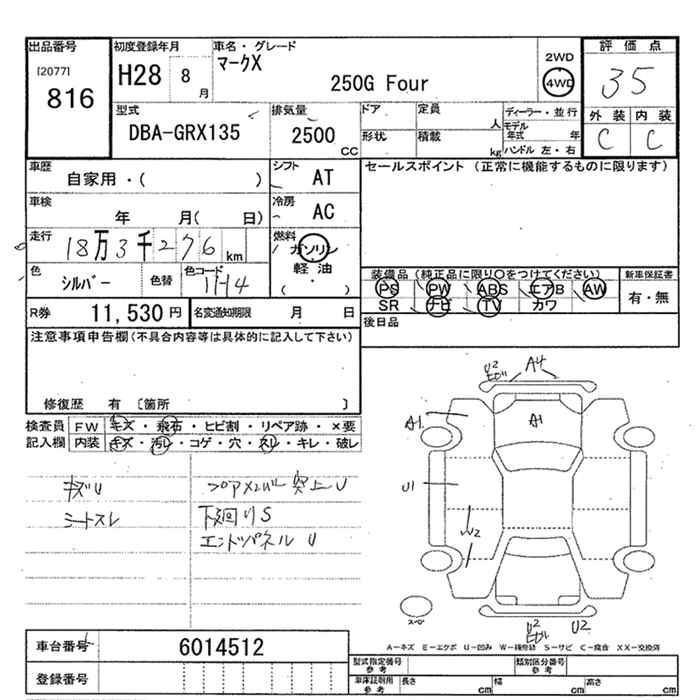 出品番号 初度登録年月 車名・グレード 評価点
[2077] マークX 2WD
816 H28 8月 250G Four 4WD 35
型式 排気量 ドア 定員 人 ディーラー・並行 外装 内装
DBA-GRX135 2500 CC 形状 積載 kg モデル年式 年 C C
ハンドル 左・右
車歴 シフト セールスポイント(正常に機能するものに限ります)
自家用・( ) AT
車検 冷房
年 月( 日) AC
走行 燃料
18万3千276km ガソリン
色 色替 色コード 軽油 装備品(純正品に限り○をつけてください) 新車保証書
シルバー ( ・ ) PS PW ABS エアB AW 有・無
R券 11,530円 名変通知期限 月 日 SR ナビ TV カワ
注意事項申告欄(不具合内容等は具体的に記入して下さい) 後日品
修復歴 有 〔箇所 〕
検査員 FW キズ・飛石・ヒビ割・リペア跡・×要
記入欄 内装 キズ・汚レ・コゲ・穴・スレ・キレ・破レ
U2 A4
A1 A1
キズU 突上U U1
シートスレ 下廻りS W2
エンドパネル U
スペア
U2 U2
A=キズ E=エクボ U=凹み W=補修跡 S=サビ C=腐食 XX=交換済
車台番号 6014512
登録番号
型式指定番号 参考 類別区分番号 参考
車庫証明用 参考 長さ cm 幅 cm 高さ cm